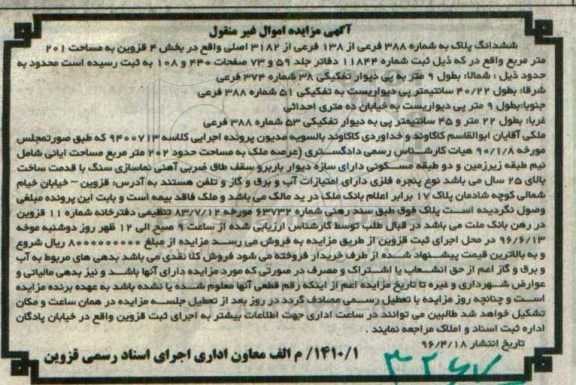 آگهی مزایده اموال غیر منقول
ششدانگ پلاک به شماره ۳۸۸ فرعی از ۱۳۸ فرعی از ۳۱۸۲ اصلی واقع در بخش ۴ قزوین به مساحت ۲۰۱
متر مربع واقع در که ذیل ثبت شماره ۱۱۸۴۴ دفاتر جلد ۵۹ و ۷۳ صفحات ۴۴۰ و ۱۰۸ به ثبت رسیده است محدود به
حدود ذیل : شمالا: بطول ۹ متر به پی دیوار تفکیکی ۳۸ شماره ۳۷۴ فرعی
شرقا: بطول ۴۰/۲۲ سانتیمتر پی دیواریست به تفکیکی ۵۱ شماره ۳۸۸ فرعی
جنوبا: بطول ۹ متر پی دیواریست به خیابان ده متری احداثی
غربا: بطول ۲۲ متر و ۴۵ سانتیمتر پی به دیوار تفکیکی ۵۳ شماره ۳۸۸ فرعی
ملکی آقایان ابوالقاسم کاکاوند و خداوردی کاکاوند بالسویه مدیون پرونده اجرایی کلاسه ۹۴۰۰۷۱۳ که طبق صورتمجلس
مورخه ۹۰/۱/۸ هیات کارشناس رسمی دادگستری (عرصه ملک به مساحت حدود ۲۰۲ متر مربع مساحت ایانی شامل
نیم طبقه زیرزمین و دو طبقه مسکونی دارای سازه دیوار باربرو سقف طاق ضربی آهنی نماسازی سنگ با قدمت ساخت
بالای ۲۵ سال می باشد نوع پنجره فلزی دارای امتیازات آب و برق و گاز و تلفن هستند به آدرس: قزوین – خیابان خیام
شمالی کوچه شادمان پلاک ۱۷ برابر اعلام بانک ملک در ید مالک می باشد و ملک فاقد بیمه است و بابت این پرونده مبلغی
وصول نگردیده است پلاک فوق طبق سند رهنی شماره ۶۳۷۳۲ مورخه ۸۳/۷/۱۲ تنظیمی دفترخانه شماره ۱۱ قزوین
در رهن بانک ملت می باشد در قبال طلب توسط کارشناس ارزیابی شده از ساعت ۹ صبح الی ۱۲ ظهر روز دوشنبه موخه
۹۶/۶/۱۳ در محل اجرای ثبت قزوین از طریق مزایده به فروش می رسد مزایده از مبلغ ۸۰۰۰۰۰۰۰۰۰ ریال شروع
و به بالاترین قیمت پیشنهاد شده از طرف خریدار فروخته می شود فروش کلا نقدی می باشد بدهی های مربوط به آب
و برق و گاز اعم از حق انشعاب یا اشتراک و مصرف در صورتی که مورد مزایده دارای آنها باشد و نیز بدهی مالیاتی و
عوارض شهرداری و غیره تا تاریخ مزایده اعم از اینکه رقم قطعی آنها معلوم شده یا نشده باشد به عهده برنده مزایده
است و چنانچه روز مزایده با تعطیل رسمی مصادف گردد در روز بعد از تعطیل جلسه مزایده در همان ساعت و مکان
تشکیل خواهد شد طالبین می توانند در ساعت اداری جهت اطلاعات بیشتر به اجرای ثبت قزوین واقع در خیابان پادگان
اداره ثبت اسناد و املاک مراجعه نمایند .
تاریخ انتشار ۹۶/۴/۱۸
۱۴۱۰/۱/ م الف معاون اداری اجرای اسناد رسمی قزوین